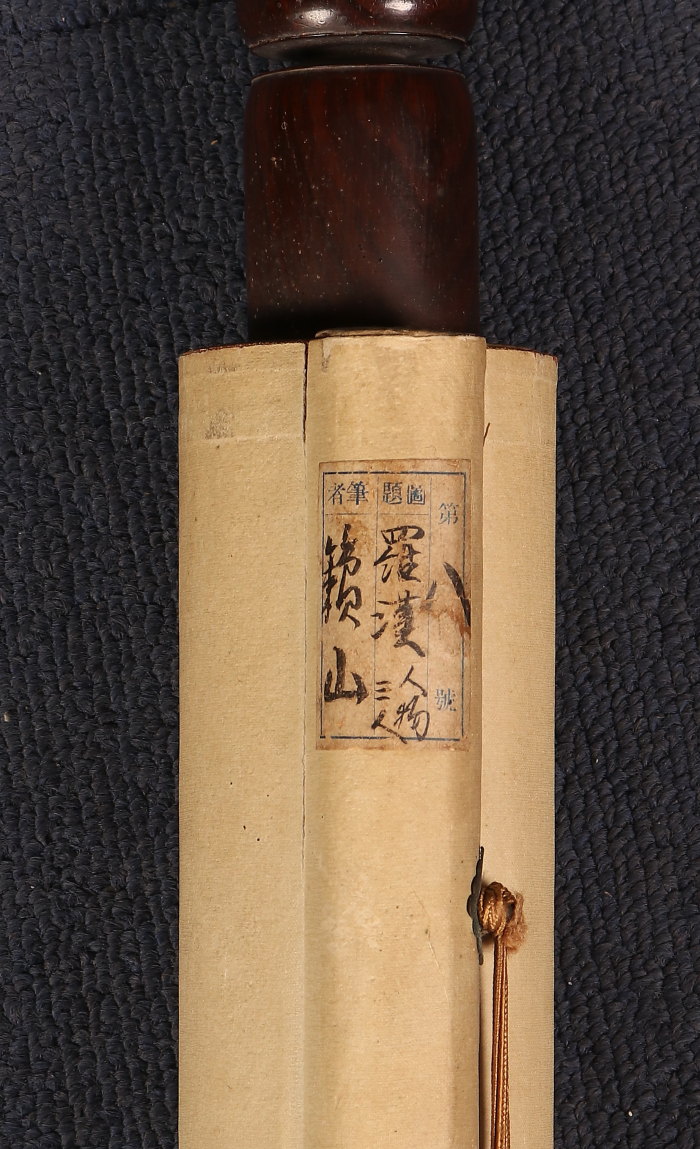 第八號
圖題
羅漢
人物
三人
筆者
籟山